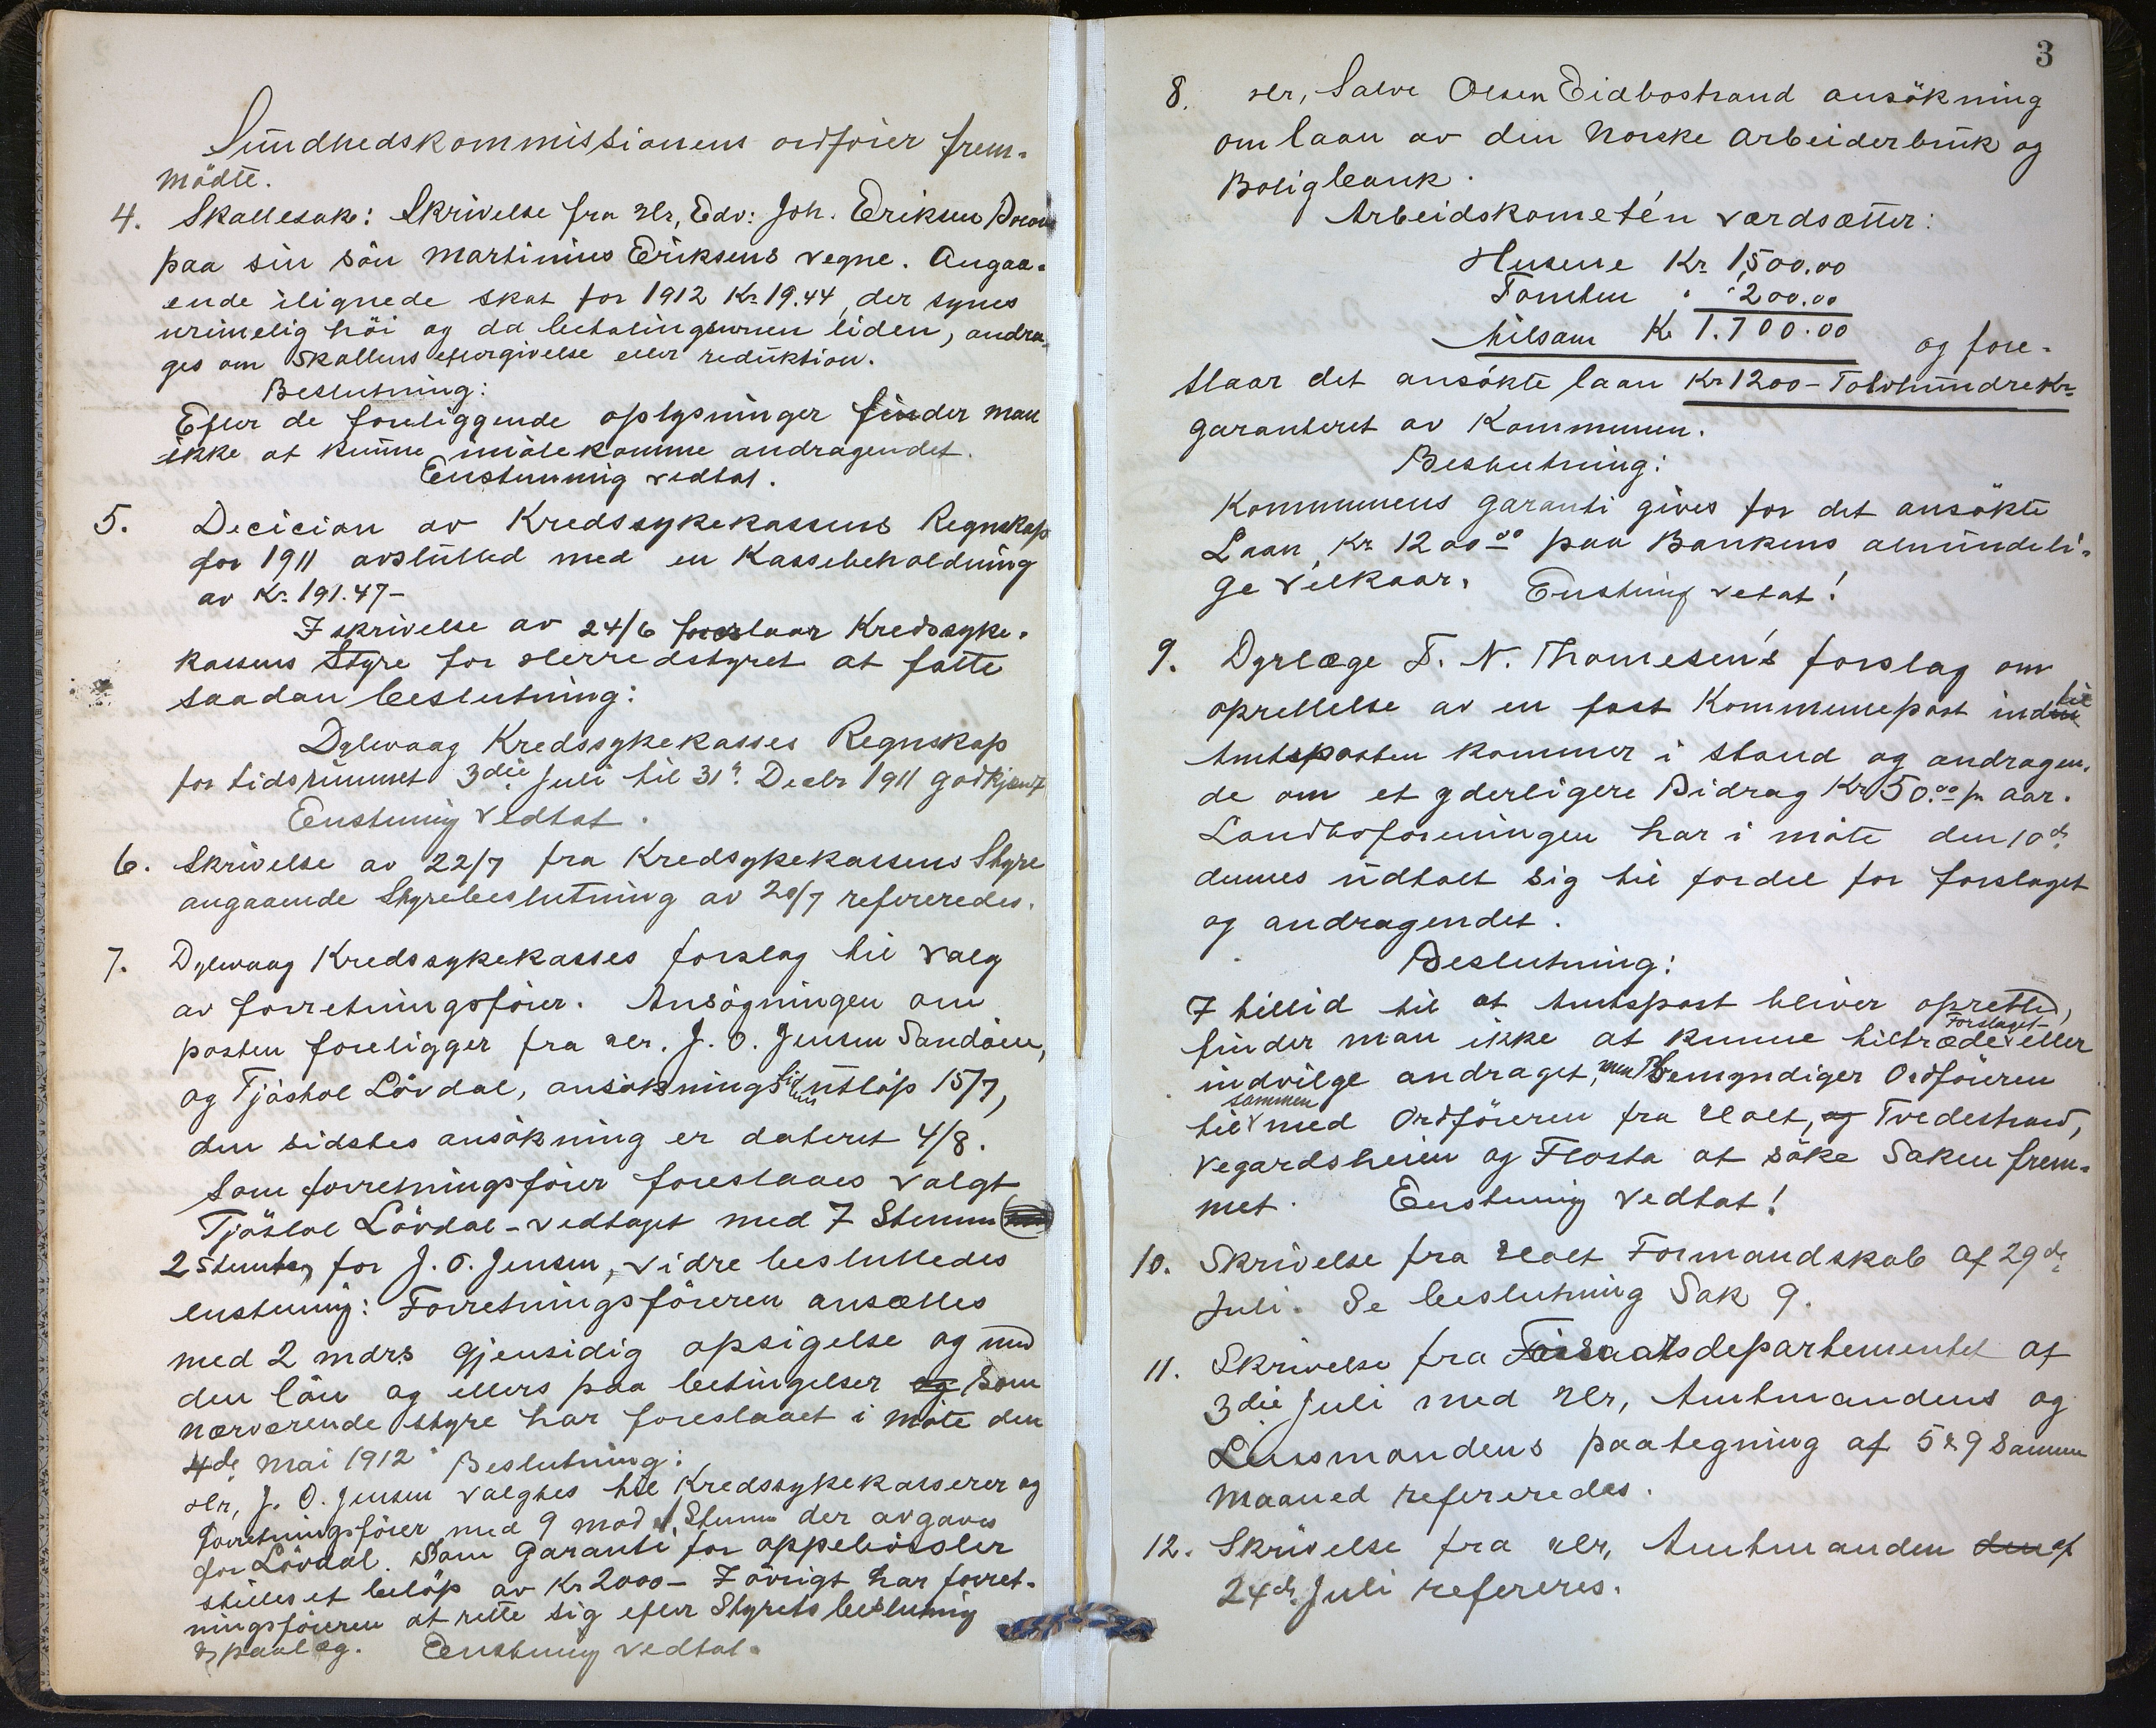 Sundhedskommissionens ordfører frem-
mödte.
4. Skattesak: Skrivelse fra Hr, Edv: Joh. Eriksen
paa sin sön Martinius Eriksens vegne. Angaa-
ende ilignede skat for 1912 Kr. 19.44, der synes
urimelig höi og da betalingsevnen liden, andra-
ges om Skattens eftergivelse eller reduktion.
Beslutning:
Efter de foreliggende oplysninger finder man
ikke at kunne imötekomme andragendet.
Enstemmig vedtat.
5. Decician av Kredssykekassens Regnskap
for 1911 avslutted med en Kassebeholdning
av Kr. 191.47-
I skrivelse av 24/6 foreslaar Kredssyke-
kassens Styre for Herredstyret at fatte
saadan beslutning:
Dybvaag Kredssykekasses Regnskap
for tidsrummet 3die Juli til 31' Decbr 1911 godkjent
Enstemig Vedtat.
6. Skrivelse av 22/7 fra Kredsykekassens Styre
angaaende Styrebeslutning av 20/7 refereredes.
7. Dybvaag Kredssykekasses forslag til valg
av forretningsförer. Ansögningen om
posten foreligger fra Hr. J. O. Jensen Sandöen,
og Tjöstol Lövdal, ansökningstidens utlöp 15/7,
den sidstes ansökning er dateret 4/8.
Som forretningsförer foreslaaes valgt
Tjöstol Lövdal - vedtaget med 7 Stemmer
2 stemter for J. O. Jensen, vidre besluttedes
enstemig: Forretningsföreren ansættes
med 2 mdrs gjensidig opsigelse og med
den lön og ellers paa betingelser og som
nærværende styre har foreslaaet i möte den
4de Mai 1912 Beslutning:
Hr, J. O. Jensen valgtes til Kredssykekasserer og
forretningsförer med 9 mod 1 Stemme der avgaves
for Lövdal. Som Garanti for oppebörsler
stilles et belöp av Kr 2000- I övrigt har forret-
ningsföreren at rette sig efter Styrets beslutning
& paalæg. Enstemig vedtat.
3
8. Hr, Salve Olsen Eidbostrand ansökning
om laan av den Norske Arbeiderbruk og
Boligbank.
Arbeidskometén værdsætter:
Husene Kr 1,500.00
Tomten " " 200.00
tilsam Kr 1.700.00 og fore-
slaar det ansökte laan Kr 1200 - Tolvhundre Kr
garanteret av Kommunen.
Beslutning:
Kommunens garanti gives for det ansökte
Laan Kr 1200.00 paa Bankens almindeli-
ge vilkaar. Enstemig vetat!
9. Dyrlæge T. N. Thomesen's forslag om
oprettelse av en fast Kommunepost indtil
Amtsposten kommer i stand og andragen-
de om et yderligere Bidrag Kr 50.00 pr aar.
Landboforeningen har i möte den 10de
dennes udtalt sig til fordel for forslaget
og andragendet.
Beslutning:
I tillid til at Amtspost bliver opretted,
finder man ikke at kunne tiltræde Forslaget eller
indvilge andraget, men bemyndiger Ordföreren
til sammen med Ordföreren fra Holt, og Tvedestrand,
Vegardsheien og Flosta at söke Saken frem-
met. Enstemig Vedtat!
10. Skrivelse fra Holt Formandskab af 29de
Juli. Se beslutning Sak 9.
11. Skrivelse fra Forsvarsdepartementet af
3die Juli med Hr, Amtmandens og
Lensmandens paategning af 5 & 9 Samme
Maaned refereredes.
12. Skrivelse fra Hr, Amtmanden den af
24de Juli refereres.